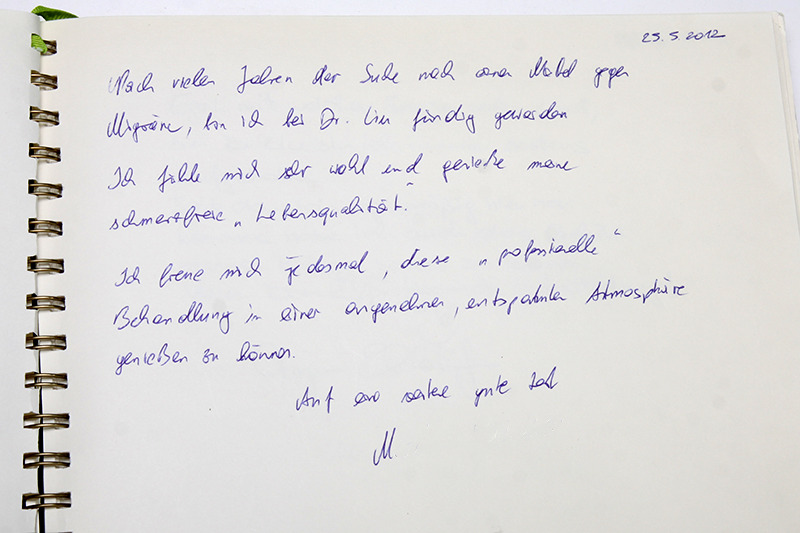 25.5.2012
Nach vielen Jahren der Suche nach einem Mittel gegen
Migräne, bin ich bei Dr. Lin fündig geworden
Ich fühle mich sehr wohl und genieße meine
schmerzfreie „Lebensqualität“.
Ich freue mich jedesmal, diese „professionelle“
Behandlung in einer angenehmen, entspannten Atmosphäre
genießen zu können.
Auf eine weitere gute Zeit
M.